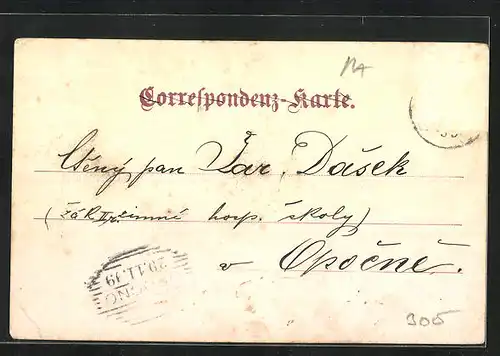 Correspondenz-Karte.
Ctěný pan Jar. Dašek
(žák II. r. zimní hosp. školy)
v Opočně.
305